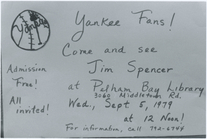 Yankees
Yankee Fans!
Come and see
Jim Spencer
at Pelham Bay Library
3060 Middletown Rd.
Wed., Sept 5, 1979
at 12 Noon!
For information, call 792-6744
Admission
Free!
All
invited!